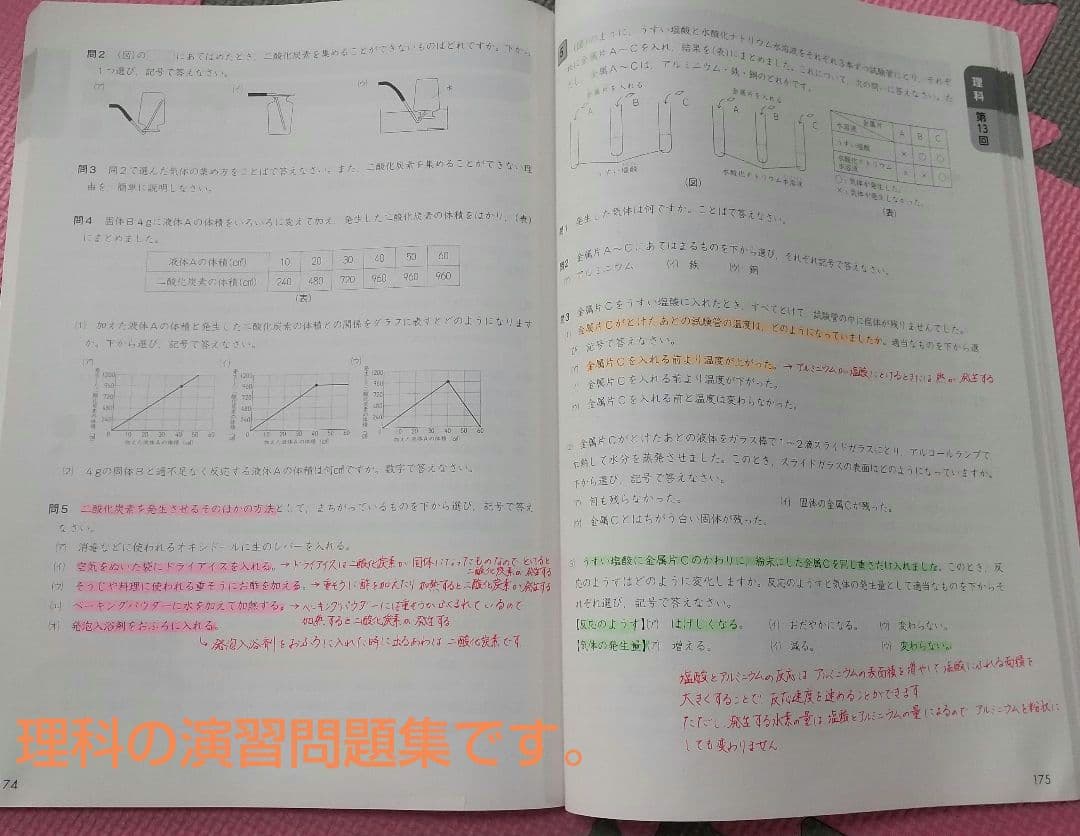 問2 (図)の　　にあてはめたとき，二酸化炭素を集めることができないものはどれですか。下から
1つ選び，記号で答えなさい。
(ア)
(イ)
(ウ)
水
問3 問2で選んだ気体の集め方をことばで答えなさい。また，二酸化炭素を集めることができない理
由を，簡単に説明しなさい。
問4 固体B4gに液体Aの体積をいろいろに変えて加え，発生した二酸化炭素の体積をはかり，(表)
にまとめました。
液体Aの体積(cm³) 10 20 30 40 50 60
二酸化炭素の体積(cm³) 240 480 720 960 960 960
(表)
(1) 加えた液体Aの体積と発生した二酸化炭素の体積との関係をグラフに表すとどのようになります
か。下から選び，記号で答えなさい。
(ア) (イ) (ウ)
1200 960 720 480 240
0 10 20 30 40 50 60
加えた液体Aの体積 (cm³)
1200 960 720 480 240
0 10 20 30 40 50 60
加えた液体Aの体積 (cm³)
1200 960 720 480 240
0 10 20 30 40 50 60
加えた液体Aの体積 (cm³)
(2) 4gの固体Bと過不足なく反応する液体Aの体積は何cm³ですか。数字で答えなさい。
問5 二酸化炭素を発生させるそのほかの方法として，まちがっているものを下から選び，記号で答え
なさい。
(ア) 消毒などに使われるオキシドールに生のレバーを入れる。
(イ) 空気をぬいた袋にドライアイスを入れる。→ドライアイスは二酸化炭素が固体になったものなので とけると
二酸化炭素が発生する
(ウ) そうじや料理に使われる重そうにお酢を加える。→重そうに酢を加えたり 加熱すると二酸化炭素が発生する
(エ) ベーキングパウダーに水を加えて加熱する。→ベーキングパウダーには重そうがふくまれているので
加熱すると二酸化炭素が発生する
(オ) 発泡入浴剤をおふろに入れる。
↳発泡入浴剤をおふろに入れた時に出るあわは 二酸化炭素です
74
理科 第13回
(図)のように，うすい塩酸と水酸化ナトリウム水溶液をそれぞれ3本ずつ試験管にとり，それぞ
れに金属片A～Cを入れ，結果を(表)にまとめました。これについて，次の問いに答えなさい。た
だし，金属A～Cは，アルミニウム・鉄・銅のどれかです。
金属片を入れる
A B C
うすい塩酸
金属片を入れる
A B C
水酸化ナトリウム水溶液
(図)
水溶液 金属片 A B C
うすい塩酸 × ○ ○
水酸化ナトリウム水溶液 × × ○
○：気体が発生した。
×：気体が発生しなかった。
(表)
問1 発生した気体は何ですか。ことばで答えなさい。
問2 金属片A～C，にあてはまるものを下から選び，それぞれ記号で答えなさい。
(ア) アルミニウム (イ) 鉄 (ウ) 銅
問3 金属片Cをうすい塩酸に入れたとき，すべてとけて，試験管の中に固体が残りませんでした。
(1) 金属片Cがとけたあとの試験管の温度は，どのようになっていましたか。適当なものを下から選
び，記号で答えなさい。
(ア) 金属片Cを入れる前より温度が上がった。→アルミニウムが塩酸にとけるときには 熱が発生する
(イ) 金属片Cを入れる前より温度が下がった。
(ウ) 金属片Cを入れる前と温度は変わらなかった。
(2) 金属片Cがとけたあとの液体をガラス棒で1～2滴スライドガラスにとり，アルコールランプで
加熱して水分を蒸発させました。このとき，スライドガラスの表面はどのようになっていますか。
下から選び，記号で答えなさい。
(ア) 何も残らなかった。 (イ) 固体の金属Cが残った。
(ウ) 金属Cとはちがう白い固体が残った。
(3) うすい塩酸に金属片Cのかわりに，粉末にした金属Cを同じ重さだけ入れました。このとき，反
応のようすはどのように変化しますか。反応のようすと気体の発生量として適当なものを下からそ
れぞれ選び，記号で答えなさい。
【反応のようす】(ア) はげしくなる。 (イ) おだやかになる。 (ウ) 変わらない。
【気体の発生量】(ア) 増える。 (イ) 減る。 (ウ) 変わらない。
塩酸とアルミニウムの反応は アルミニウムの表面積を増やして塩酸にふれる面積を
大きくすることで 反応速度を速めることができます
ただし，発生する水素の量は 塩酸とアルミニウムの量によるので アルミニウムを粉状に
しても変わりません
175
理科の演習問題集です。